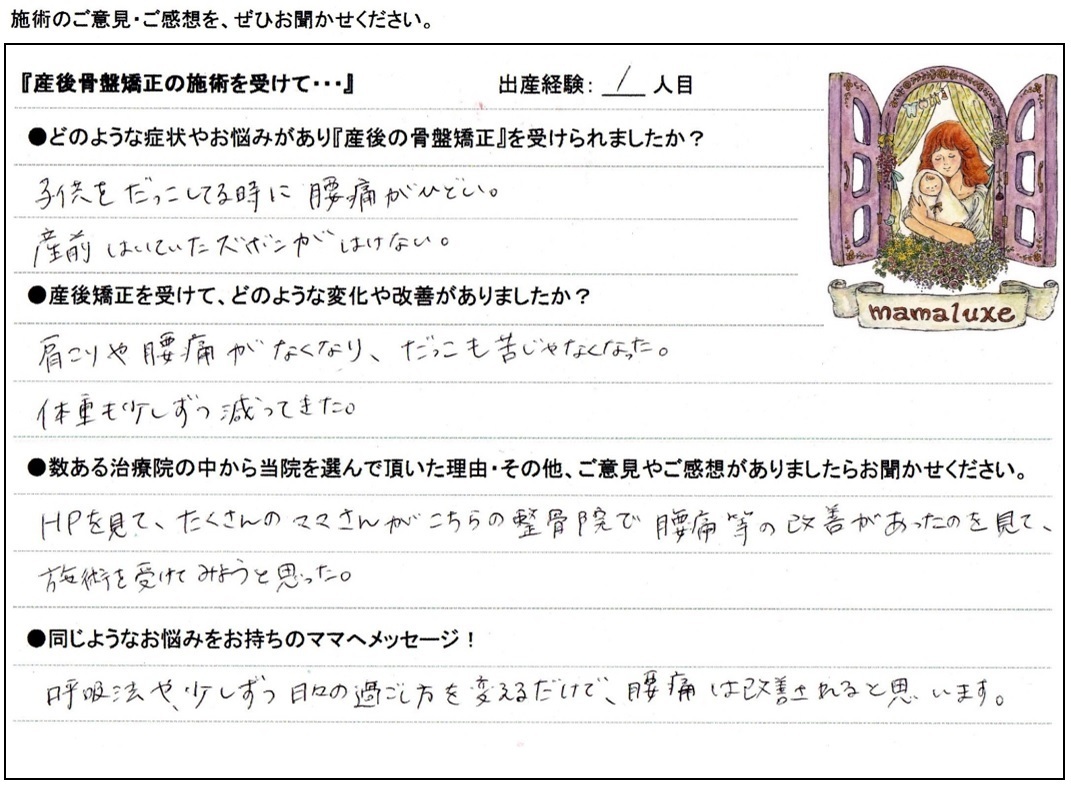 施術のご意見・ご感想を、ぜひお聞かせください。
『産後骨盤矯正の施術を受けて・・・』 出産経験： 1 人目
●どのような症状やお悩みがあり『産後の骨盤矯正』を受けられましたか？
子供をだっこしてる時に腰痛がひどい。
産前はいていたズボンがはけない。
●産後矯正を受けて、どのような変化や改善がありましたか？
肩こりや腰痛がなくなり、だっこも苦じゃなくなった。
体重も少しずつ減ってきた。
●数ある治療院の中から当院を選んで頂いた理由・その他、ご意見やご感想がありましたらお聞かせください。
HPを見て、たくさんのママさんがこちらの整骨院で腰痛等の改善があったのを見て、
施術を受けてみようと思った。
●同じようなお悩みをお持ちのママへメッセージ！
呼吸法や、少しずつ日々の過ごし方を変えるだけで、腰痛は改善されると思います。
mamaluxe